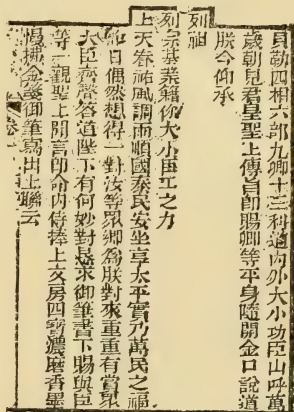 貝勒四相六部九卿十三科道內外大小功臣山呼萬
歲朝見君皇聖上傳旨卽賜卿等平身隨開金口說道
朕今仰承
列祖
列宗基業籍你大小臣工之力
上天眷祐風調雨順國泰民安坐享太平實乃萬民之福
日偶然想得一對汝等眾卿為朕對來重重有賞眾
大臣齊聲答道陛下有何妙對懇求御筆書下賜與臣
等一觀聖上聞言卽命內侍捧上文房四寶濃磨香墨
御筆寫出上聯云